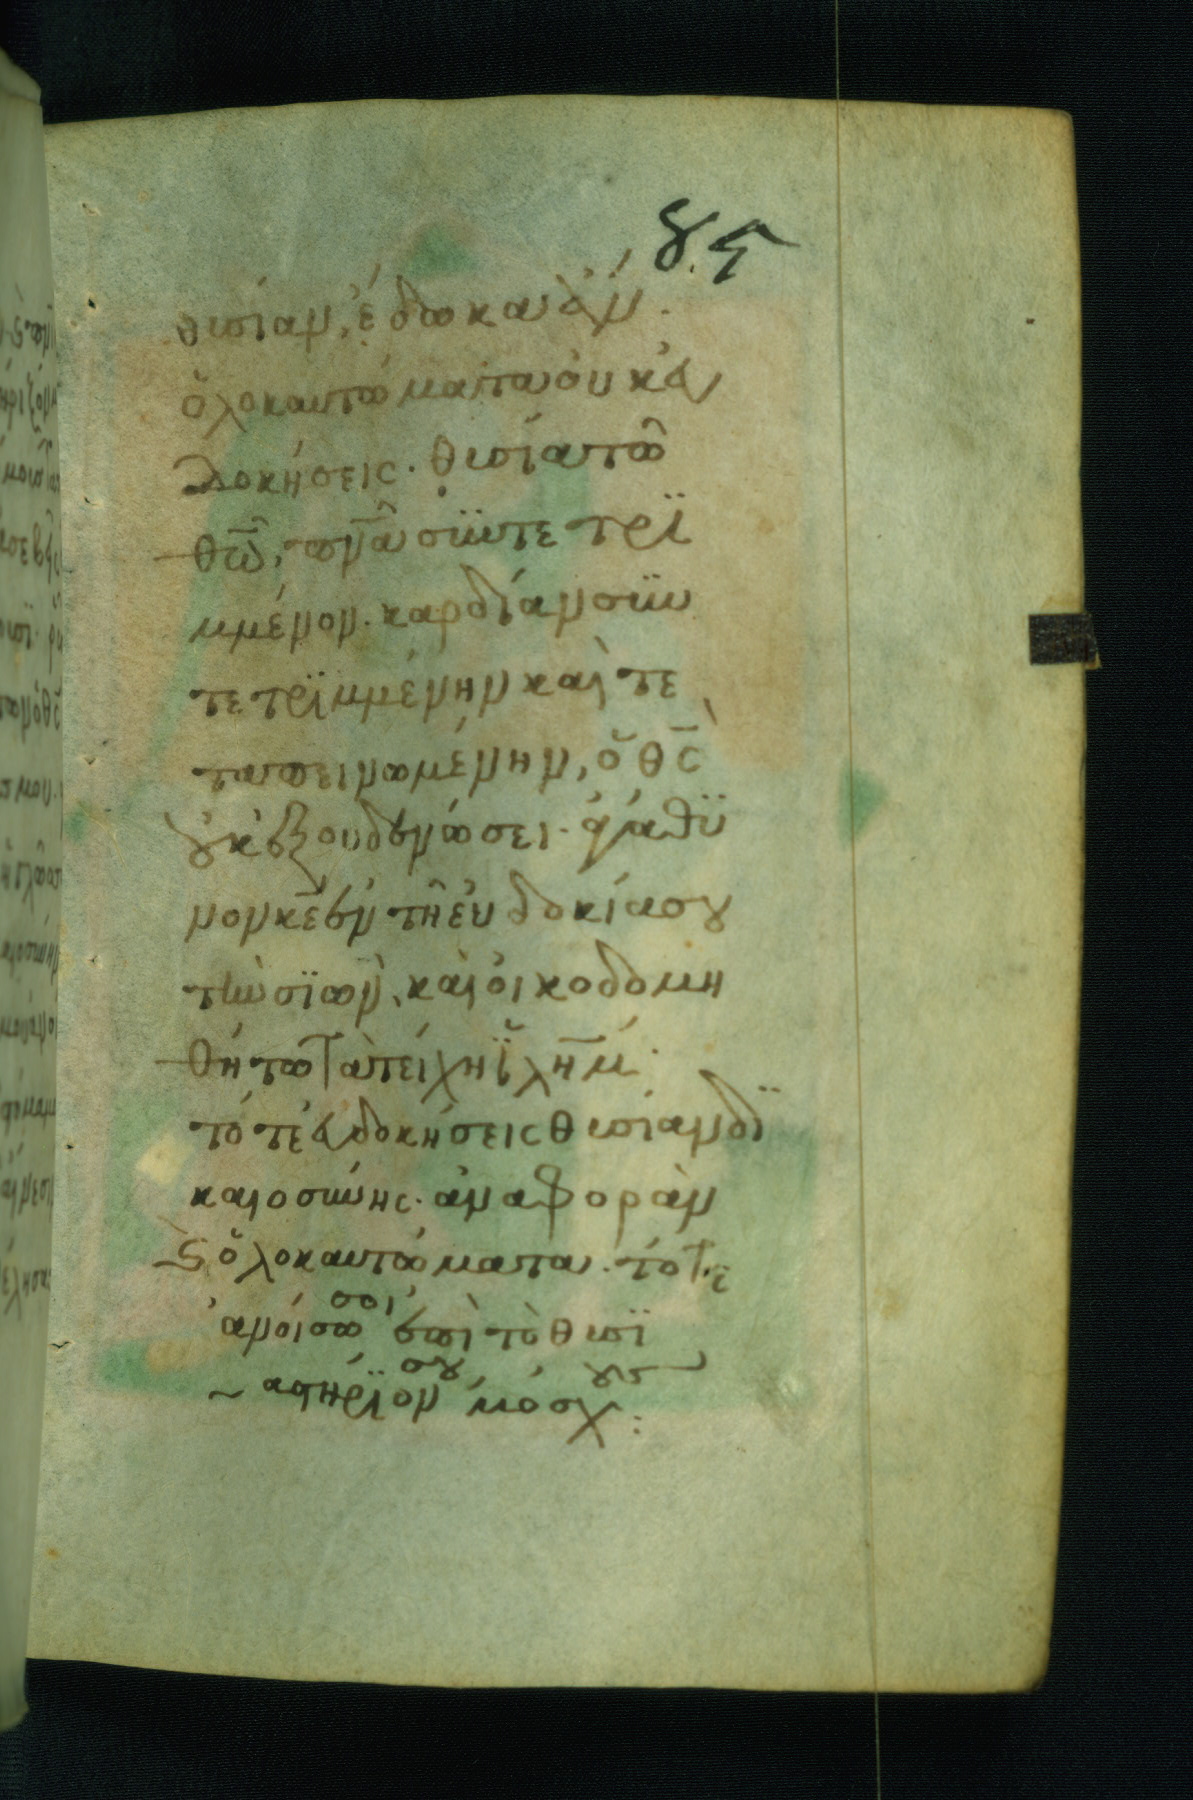 δς
θυσίαν, ἔδωκα ἄν.
ὁλοκαυτώματα οὐκ εὐ
δοκήσεις. θυσία τῶ
θῶ, πνα συντετρϊ
μμένον. καρδίαν συν
τετρϊμμένην καὶ τε
ταπεινωμένην, ὁ θς
οὐκ ἐξουδενώσει. ἀγάθϋ
νον κε ἐν τῆ εὐδοκία σου
τὴν σϊὼν, καὶ οἰκοδομη
θήτω τὰ τείχη ϊλημ.
τότε εὐδοκήσεις θυσίαν δϊ
καιοσύνης. ἀναφορὰν
ς ὁλοκαυτώματα. τότε
ἀνοίσωσιν ἐπὶ τὸ θυσϊ
αστήρϊόν σου μόσχους :~